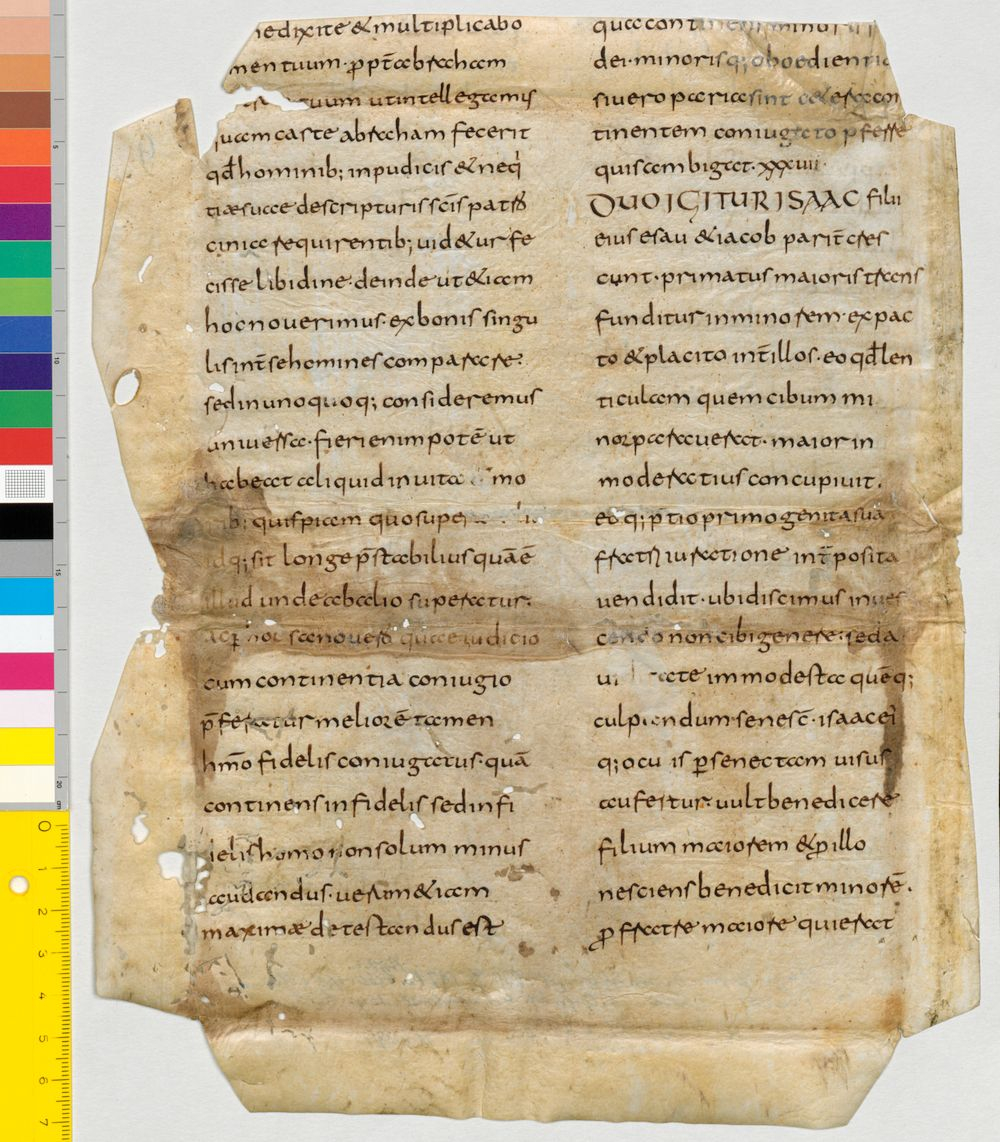 nedixite & multiplicabo
men tuum · ꝓpt̄ abraham
tuum ut intellegamis
quam caste abraham fecerit
qđ hominib; inpudicis & neq
tiæ suae descripturis sc̄is pat
cinia requirentib; uid&ur fe
cisse libidine · deinde ut &iam
hoc nouerimus · ex bonis singu
lis int̄ se homines comparare ·
sed in unoquoq; consideremus
uniuersa · fieri enim potē ut
habeat aliquid in uita mo
rib; quispiam quo supe
idq; sit longe p̄stabilius quā ē
illud unde ab alio superatur ·
sano uero quae iudicio
cum continentia coniugio
p̄feratur meliorē tamen
hmō fidelis coniugatus · quā
continens infidelis sed infi
delis homo non solum minus
laudandus · uerum &iam
maximæ detestandus est
quae con
dei · minorisq; oboedientia
si uero paria sint cetera con
tinentem coniugato p̄ferre
quis ambigat · xxxuii ·
DUO IGITUR ISAAC filii
eius esau & iacob parit̄ cres
cunt · primatus maioris trans
funditur in minorem · ex pac
to & placito int̄ illos · eo qđ len
ticulam quem cibum mi
nor parauerat · maior in
moderatius concupiuit ·
eoq; p̄tio primogenita sua
fratri iuratione int̄posita
uendidit · ubi discimus in ues
cendo non cibi genere · sed a
uiditate immodesta quēq;
culpandum · senesc̄ · isaac ei
q; oculis ꝑ senectam uisus
aufertur · uult benedicere
filium maiorem & ꝑ illo
nesciens benedicit minorē ·
ꝓ fratre maiore qui erat